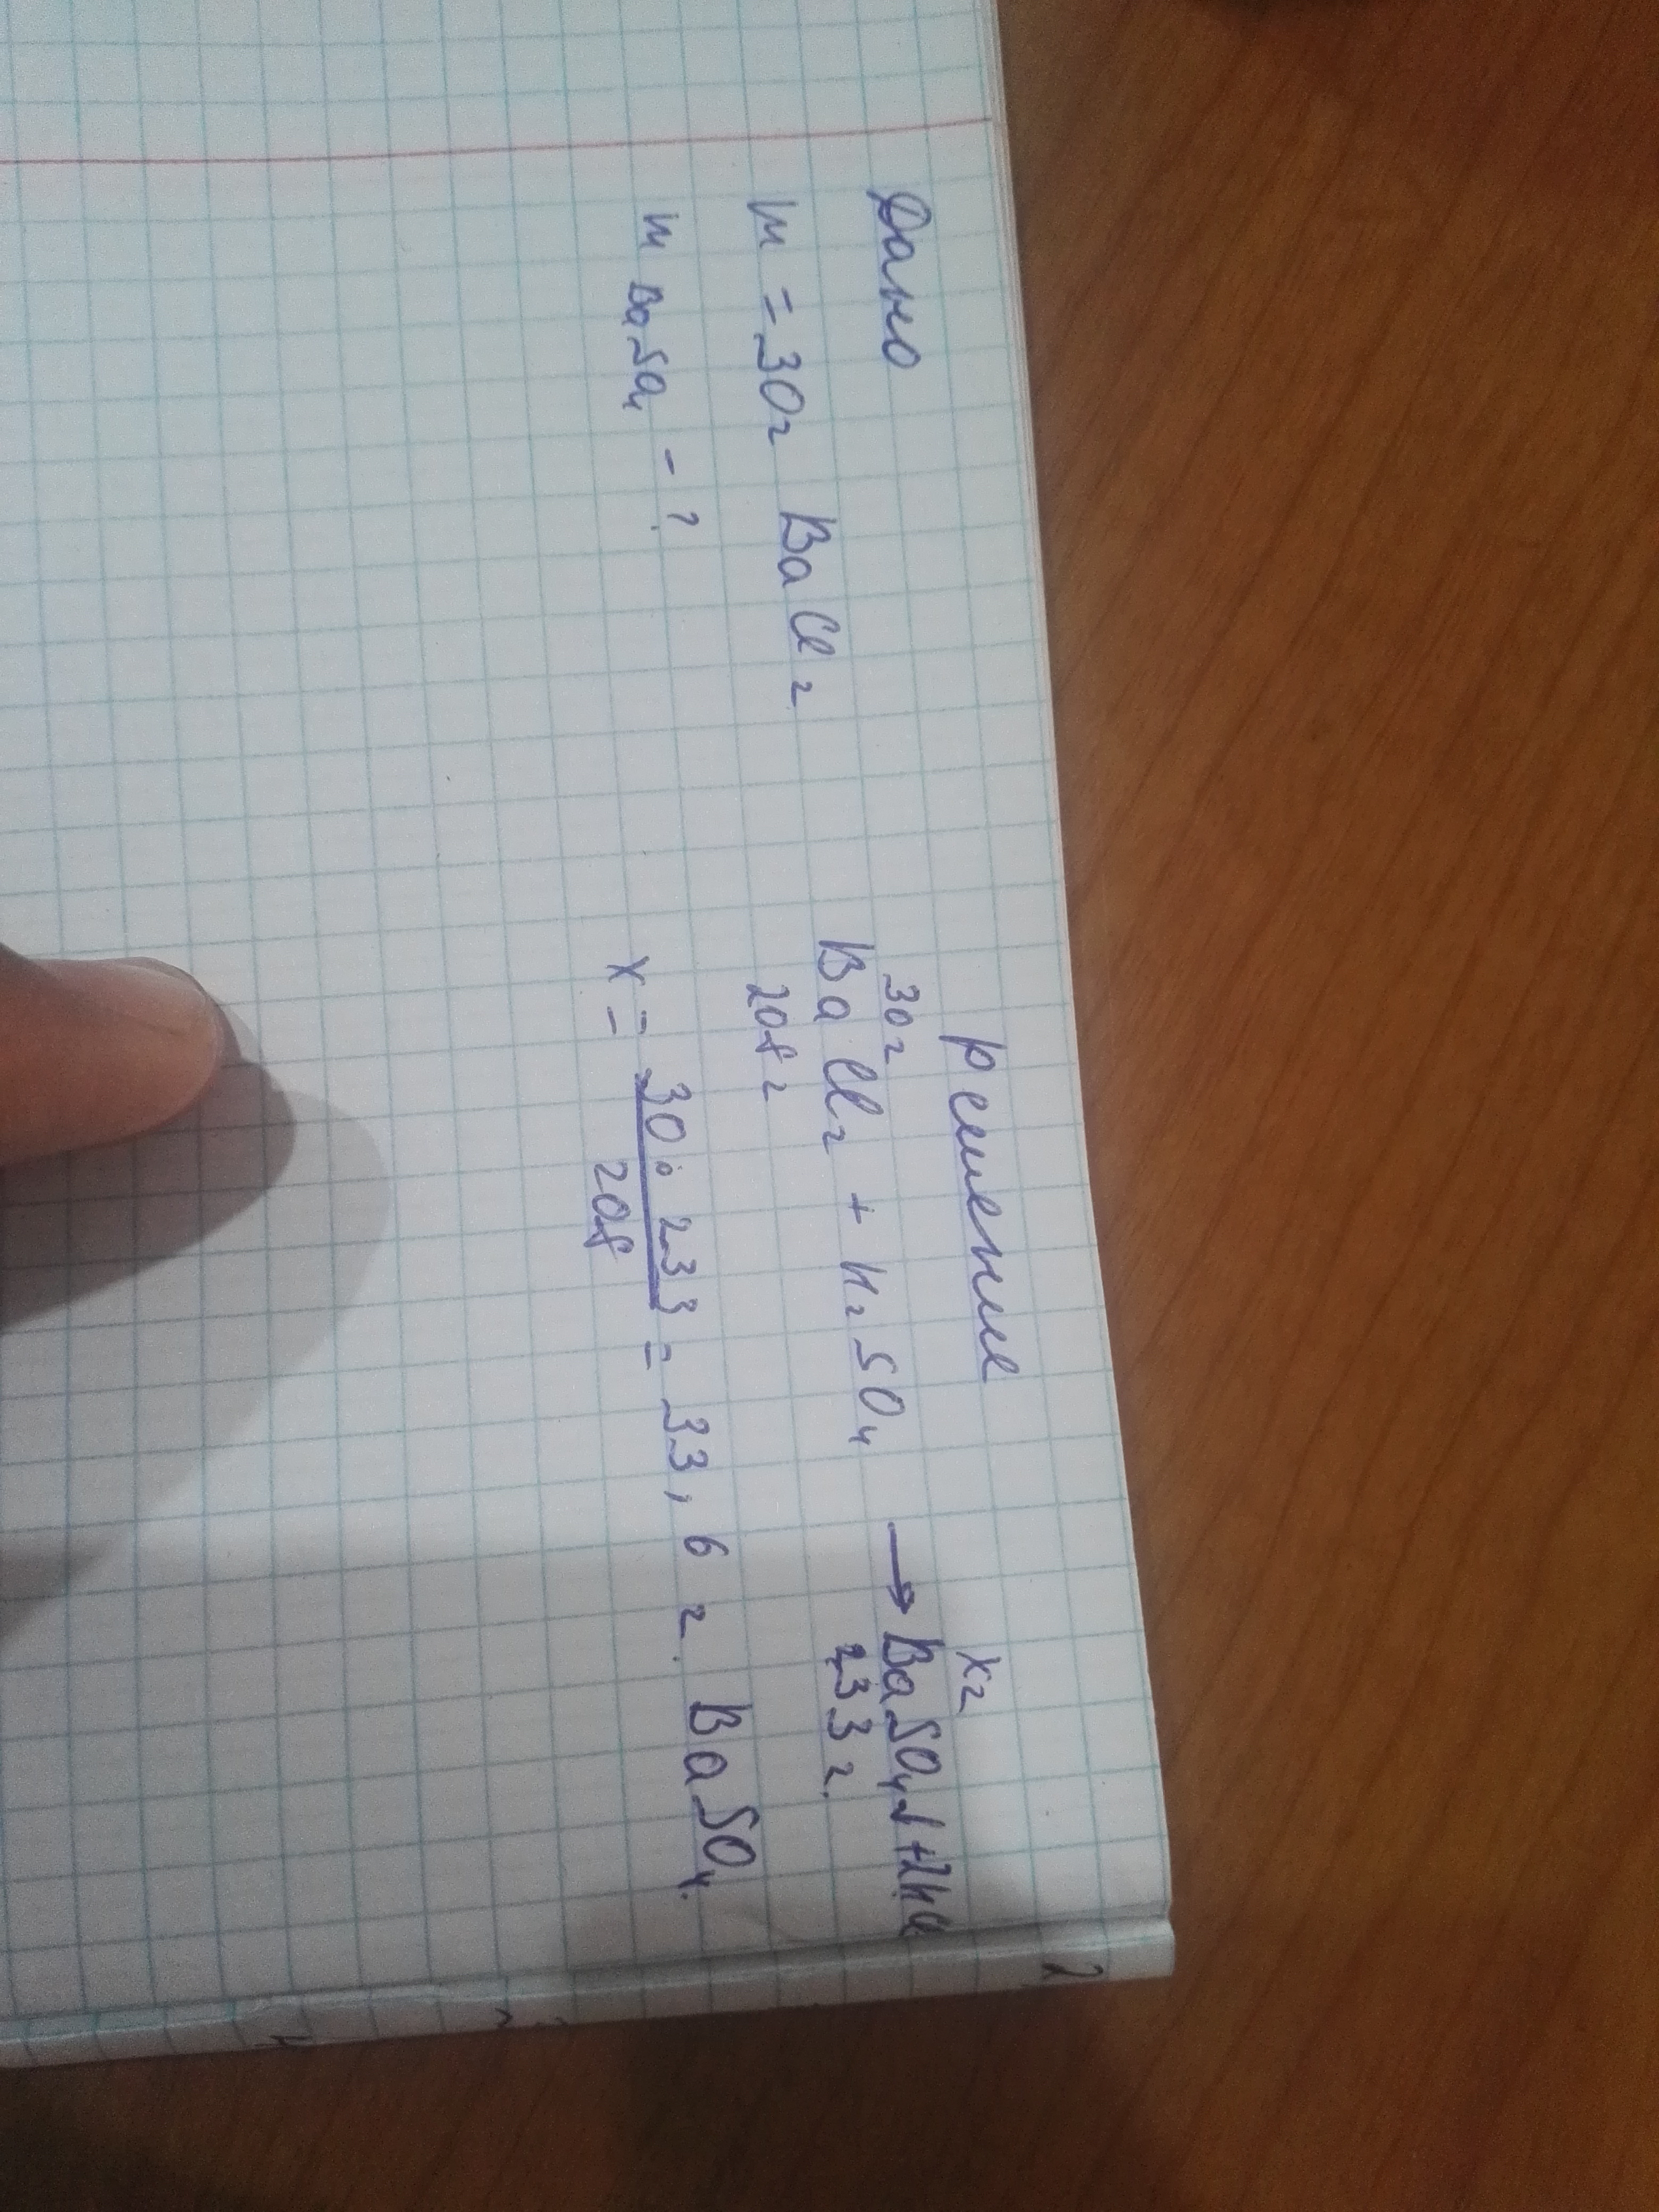 Дано
m = 30г BaCl₂
m BaSO₄ - ?
Решение
30г хг
BaCl₂ + H₂SO₄ → BaSO₄↓ + 2HCl
208г 233г.
x = 30 · 233 / 208 = 33,6 г. BaSO₄.